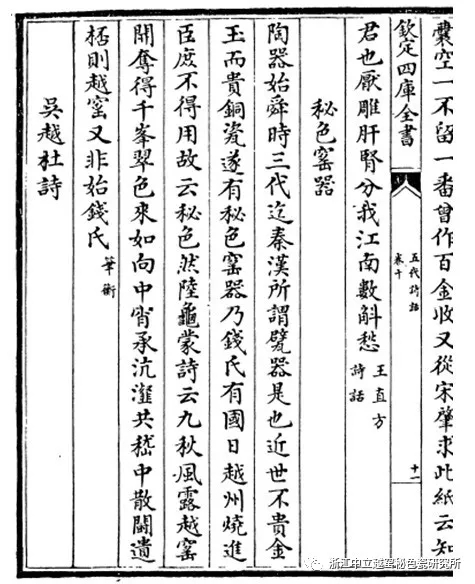 囊空一不留一番曾作百金收又從宋肇求此紙云知
欽定四庫全書
五代詩話
卷十
十一
君也厭雕肝腎分我江南數斛愁
王直方
詩話
秘色窑器
陶器始舜時三代迄秦漢所謂甓器是也近世不貴金
玉而貴銅瓷遂有秘色窑器乃錢氏有國日越州燒進
臣庶不得用故云秘色然陸龜蒙詩云九秋風露越窑
開奪得千峯翠色來如向中宵承沆瀣共嵇中散鬭遺
桮則越窑又非始錢氏
筆衡
吳越杜詩
浙江中立越窑秘色瓷研究所